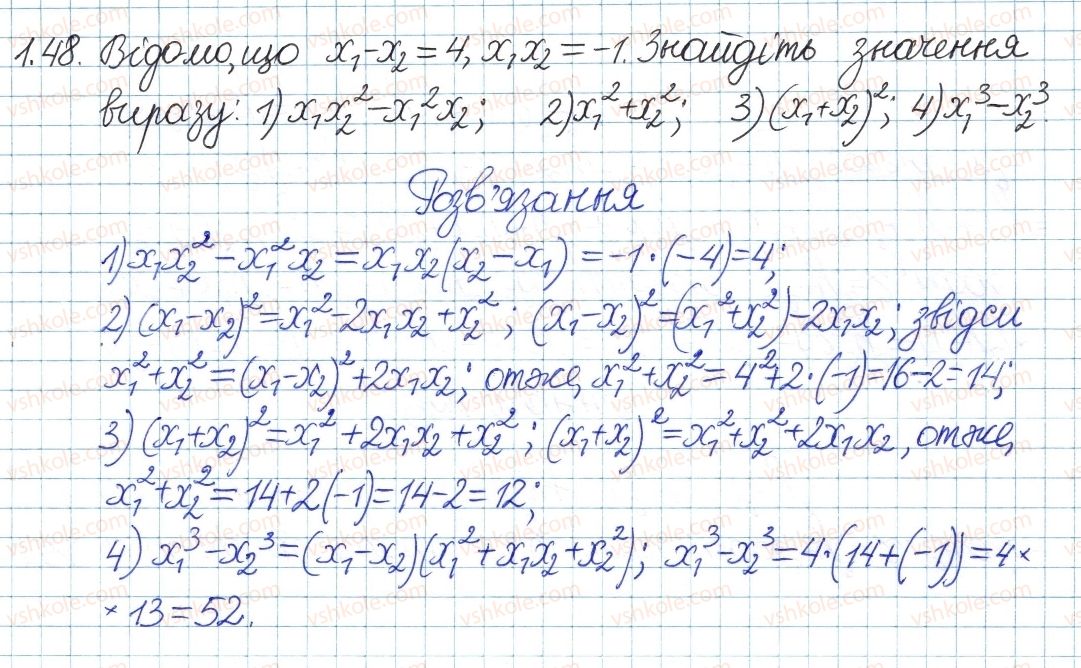 1.48. Відомо, що x₁-x₂=4, x₁x₂=-1. Знайдіть значення
виразу: 1) x₁x₂²-x₁²x₂; 2) x₁²+x₂²; 3) (x₁+x₂)²; 4) x₁³-x₂³.
Розв'язання
1) x₁x₂²-x₁²x₂=x₁x₂(x₂-x₁)=-1·(-4)=4;
2) (x₁-x₂)²=x₁²-2x₁x₂+x₂²; (x₁-x₂)²=(x₁²+x₂²)-2x₁x₂; звідси
x₁²+x₂²=(x₁-x₂)²+2x₁x₂; отже, x₁²+x₂²=4²+2·(-1)=16-2=14;
3) (x₁+x₂)²=x₁²+2x₁x₂+x₂²; (x₁+x₂)²=x₁²+x₂²+2x₁x₂, отже,
x₁²+x₂²=14+2(-1)=14-2=12;
4) x₁³-x₂³=(x₁-x₂)(x₁²+x₁x₂+x₂²); x₁³-x₂³=4·(14+(-1))=4×
×13=52.
vshkole.com